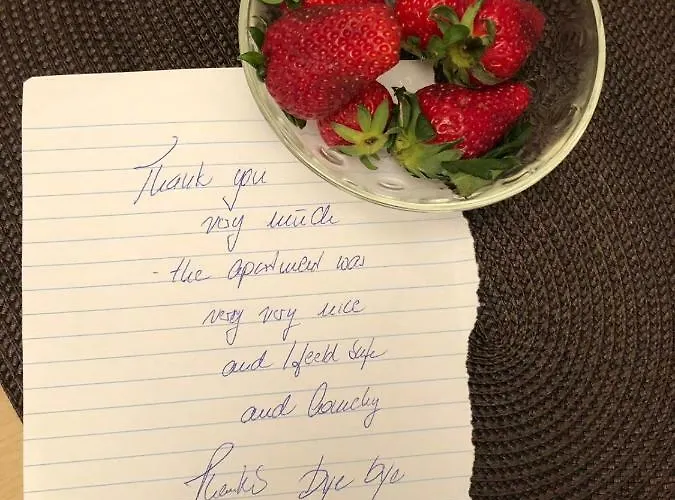 Thank you
very much
- the apartment was
very very nice
and I feeld safe
and
Thanks bye bye